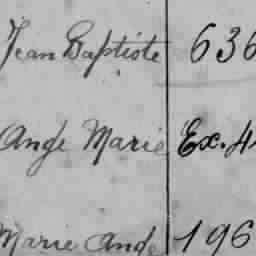 Jean Baptiste 636
Ange Marie Ex. 4
Marie Ange 196